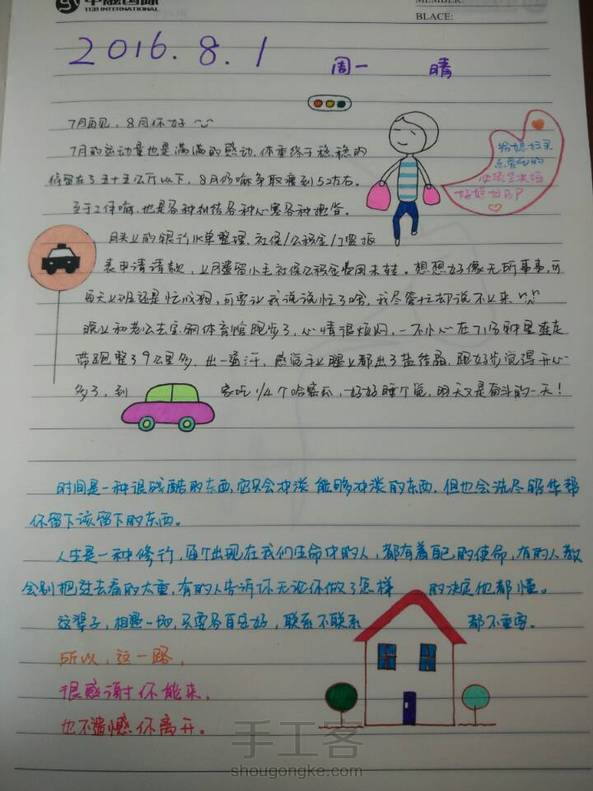 中融国际
TGB INTERNATIONAL
MEMBER:
BLACE:
2016.8.1 周一 晴
7月再见，8月你好
7月的运动量也是满满的感动，体重终于稳稳的
停留在了五十五公斤以下，8月份嘛争取瘦到52左右。
至于工作嘛，也是各种纠结各种心塞各种
月头上的银行账单整理，社保/公积金/工资报
表申请请款，上月遗留小王社保公积金费用未转。想想好像无所事事，可
每天上班还是忙成狗，可要让我说说忙了啥，我尽管忙却说不上来
晚上和老公去宝钢体育馆跑步了，心情很烦闷，一不小心在71分钟里连走
带跑整了9公里多，出一通汗，感觉手上腿上都出了盐结晶，跑好步觉得开心
多了，到家吃1/4个哈密瓜，好好睡个觉，明天又是奋斗的一天！
给妈妈买
时间是一种很残酷的东西，它只会冲淡能够冲淡的东西，但也会洗尽铅华帮
你留下该留下的东西。
人生是一种修行，每个出现在我们生命中的人，都有着自己的使命，有的人教
会别把过去看的太重，有的人告诉你无论你做了怎样的决定他都懂。
这辈子，相遇一场，只要各自安好，联系不联系都不重要。
所以，这一路，
很感谢你能来，
也不遗憾你离开。
手工客
shougongke.com